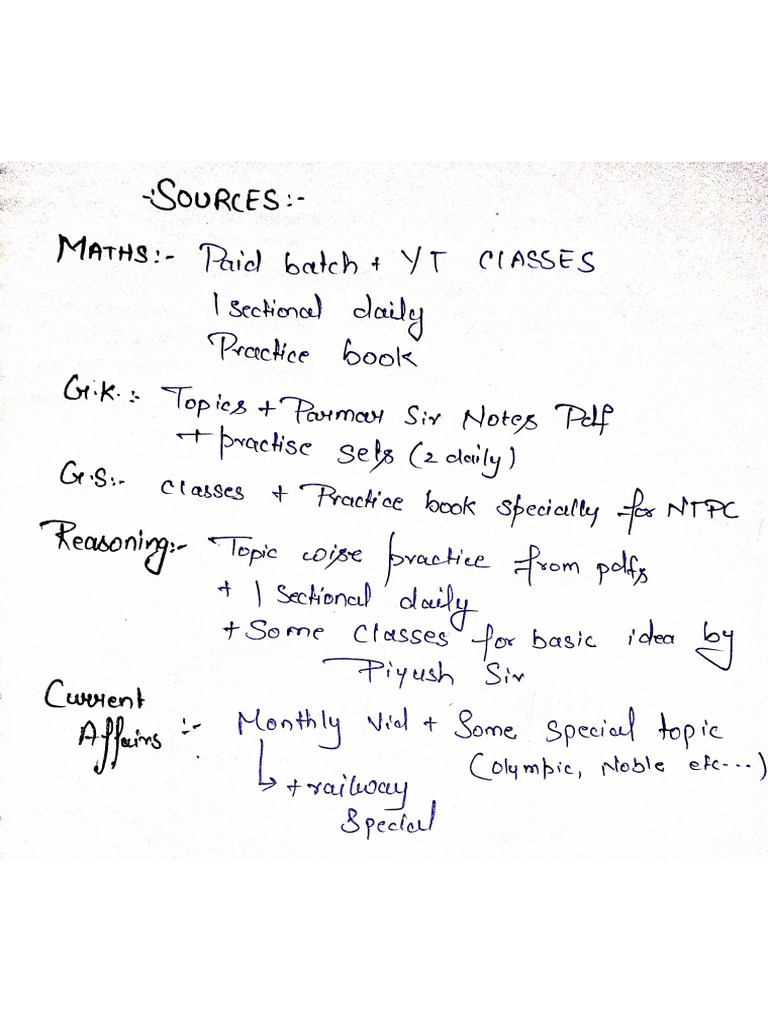 -:SOURCES:-
MATHS:- Paid batch + YT CLASSES
1 sectional daily
Practice book
G.K.:- Topics + Parmar Sir Notes Pdf
+ practise sets (2 daily)
G.S:- classes + Practice book specially for NTPC
Reasoning:- Topic wise practice from pdfs
+ 1 sectional daily
+ Some classes for basic idea by
Piyush Sir
Current
Affairs :- Monthly vid + Some special topic
(Olympic, Noble etc---)
+ railway
special